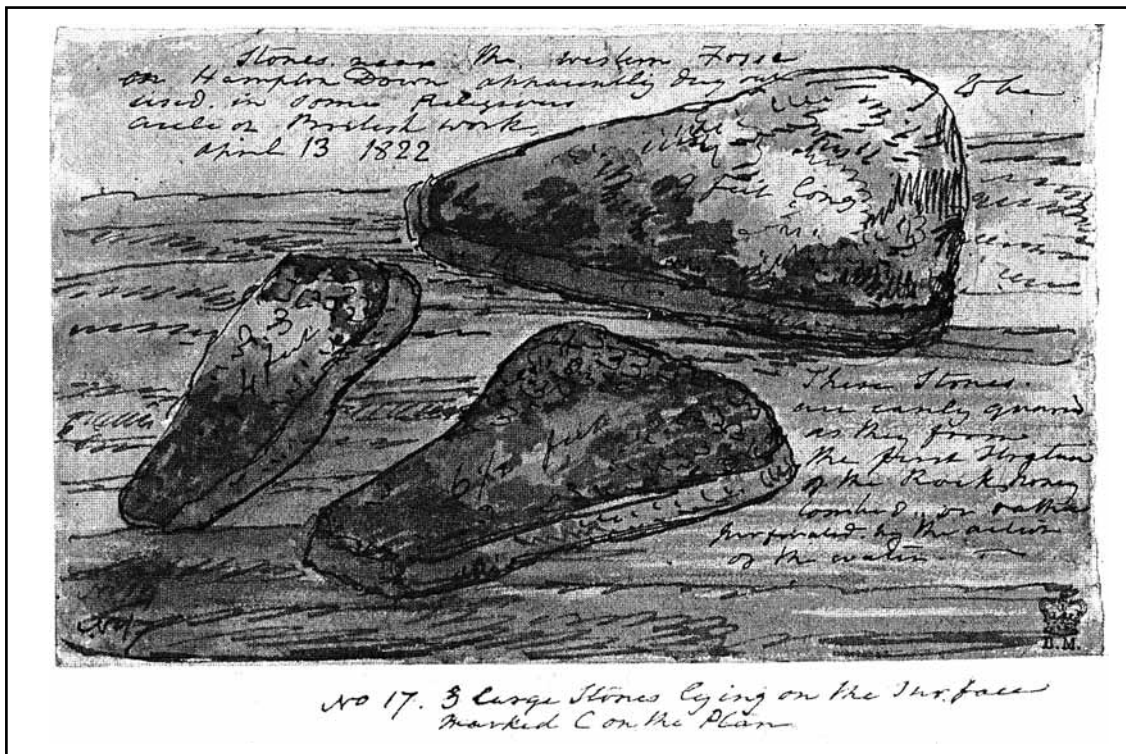 Stones near the western Fosse
on Hampton Down apparently dug out to be
used in some Religious
circle or British work
April 13 1822
9 feet long
8 feet
6 1/2 feet
These Stones
are easily quarried
as they form
the first Stratum
of the Rock honey
combed or rather
perforated by the action
of the water
No 17
B.M.
No 17. 3 large Stones lying on the Surface
marked C on the Plan